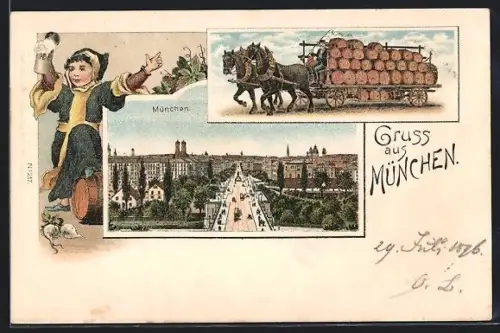 München.
Gruss
aus
MÜNCHEN.
29. Juli
O. L.